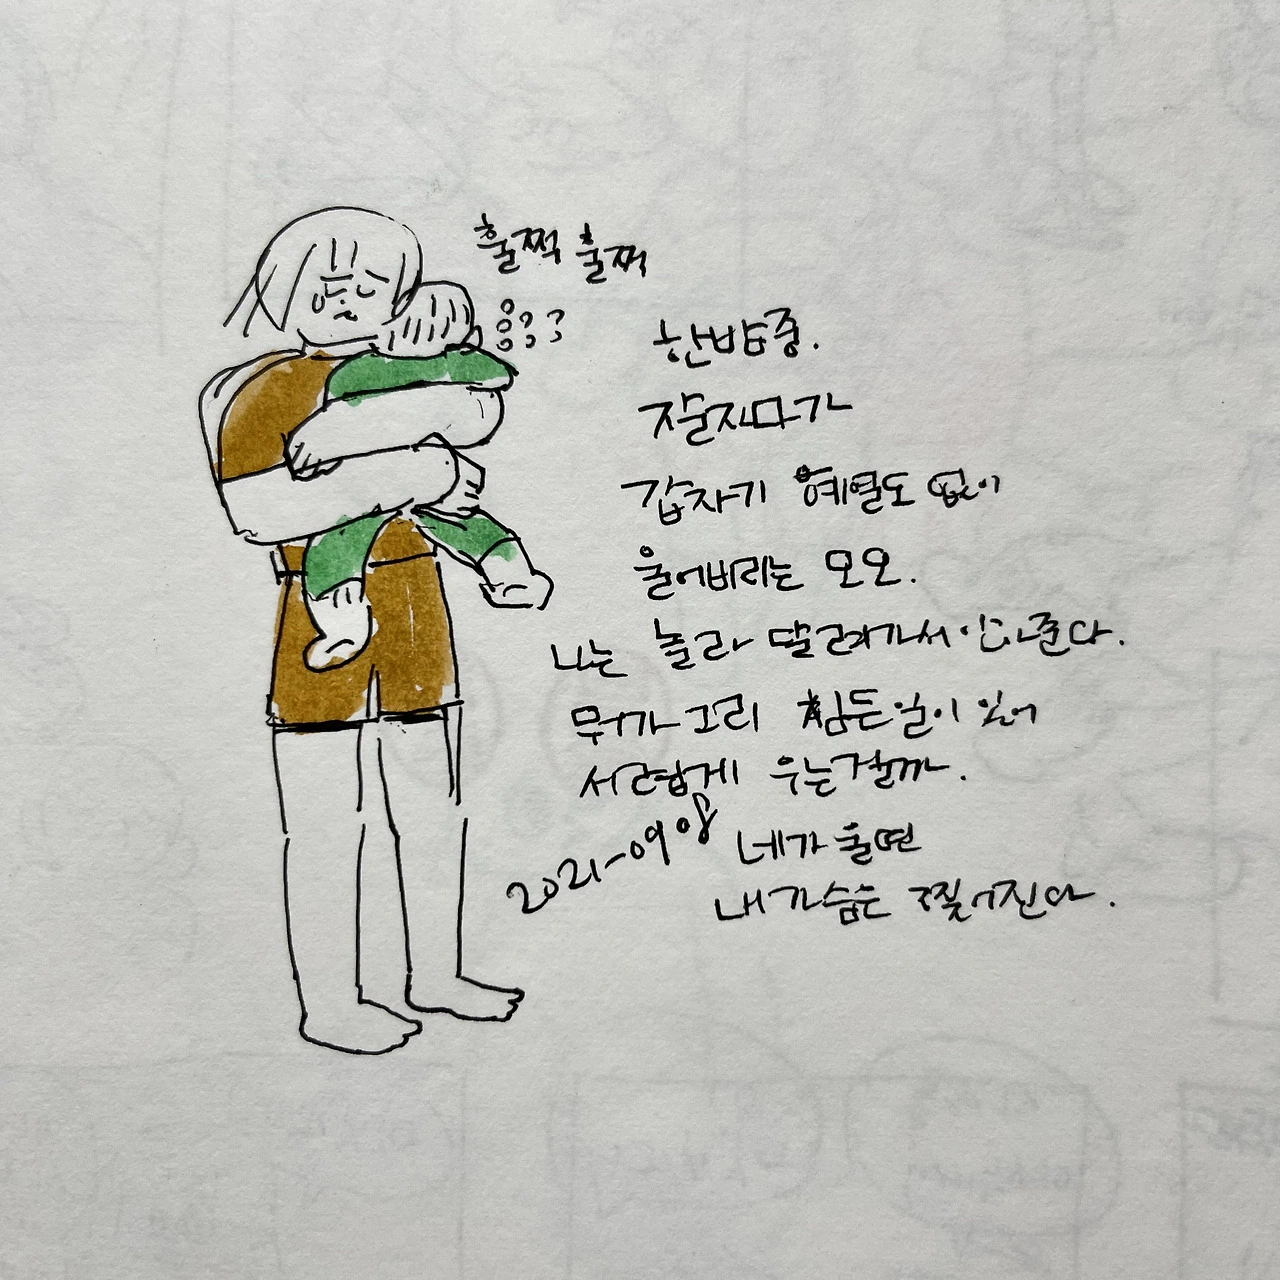 훌쩍 훌쩍
한밤중.
갑자기 예열도 없이
울어버리는 모오.
나는 놀라 달려가서 안아준다.
뭐가 그리 힘든일이 있어
서럽게 우는걸까.
2021-09
네가 울면
내 가슴은 찢어진다.